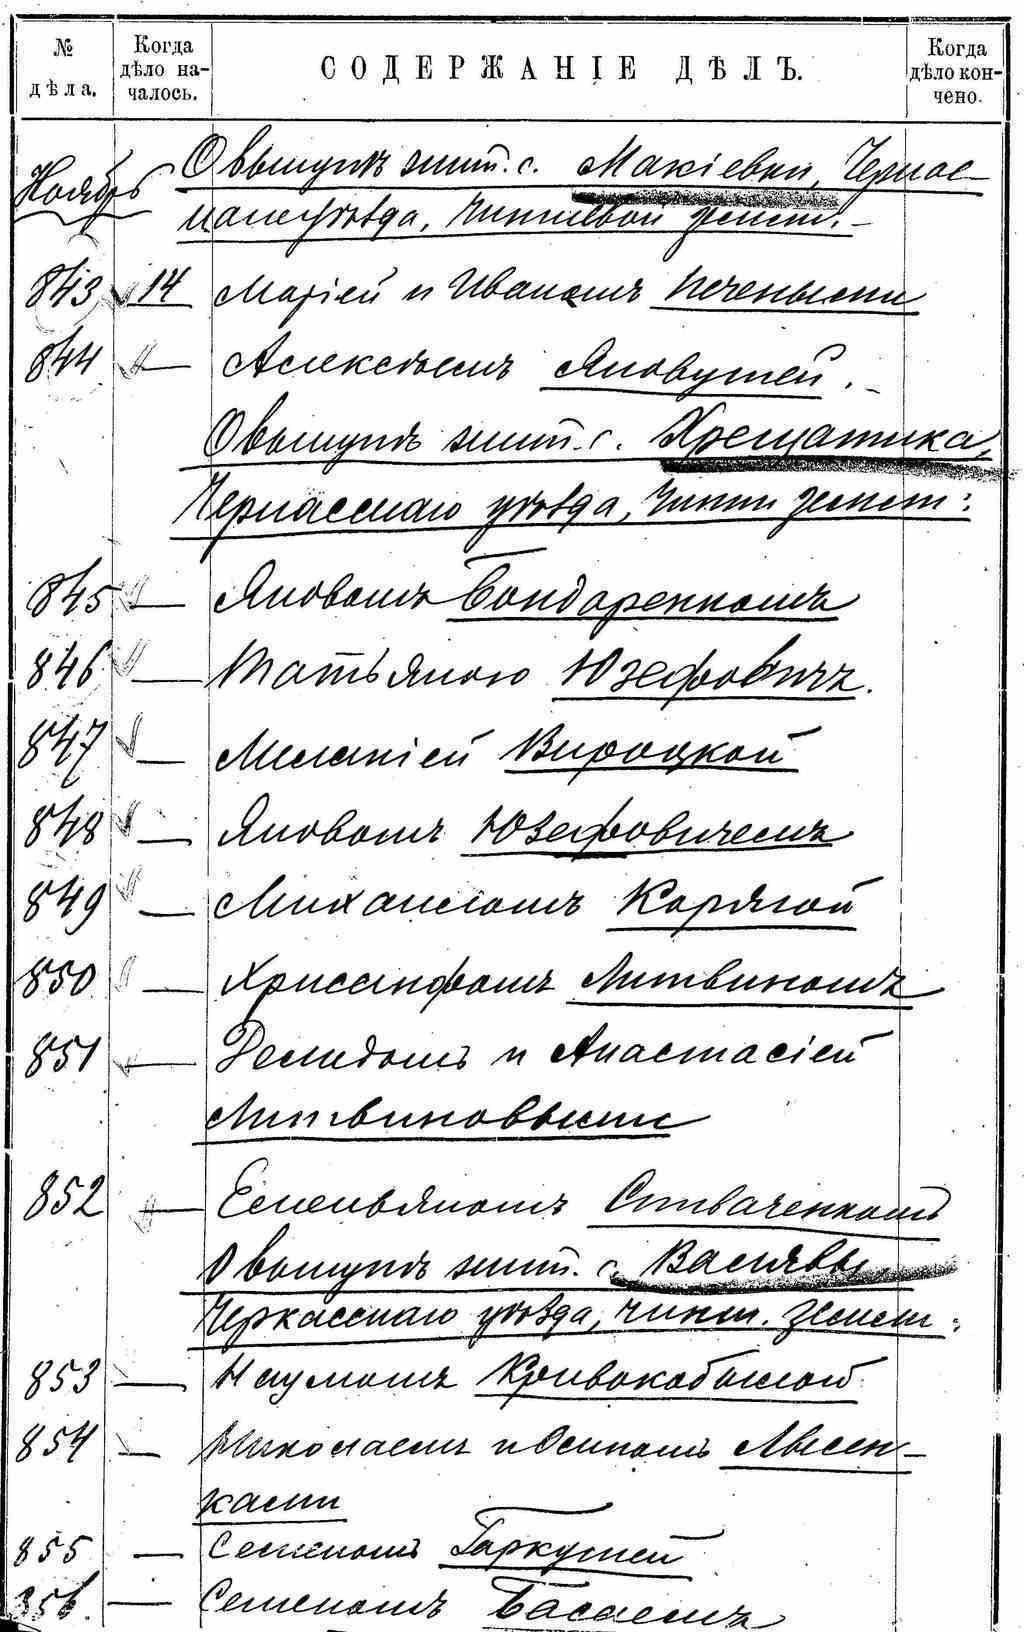 № дѣла.
Когда дѣло началось.
СОДЕРЖАНІЕ ДѢЛЪ.
Когда дѣло кончено.
Ноябрь
О выкупѣ жит. с. Макіевки, Черкас-
скаго уѣзда, чиншевой земли. —
843 14 Маріей и Иваномъ Печеными
844 — Алексѣемъ Яковушей. —
О выкупѣ жит. с. Хрещатика,
Черкасскаго уѣзда, чинш земли:
845 — Яковомъ Бондаренкомъ
846 — Татьяною Юзефовичъ.
847 — Меланіей Вироцкой
848 — Яковомъ Юзефовичемъ
849 — Михаиломъ Корягой
850 — Хрисанфомъ Литвиномъ
851 — Демидомъ и Анастасіей
Литвиновыми
852 — Емельяномъ Сливаченкомъ
О выкупѣ жит. с. Васлявы,
Черкасскаго уѣзда, чинш. земли:
853 — Наумомъ Кривокобылой
854 — Николаемъ и Осипомъ Лысен-
ками
855 — Семеномъ Гаркушей
856. — Семеномъ Басаемъ